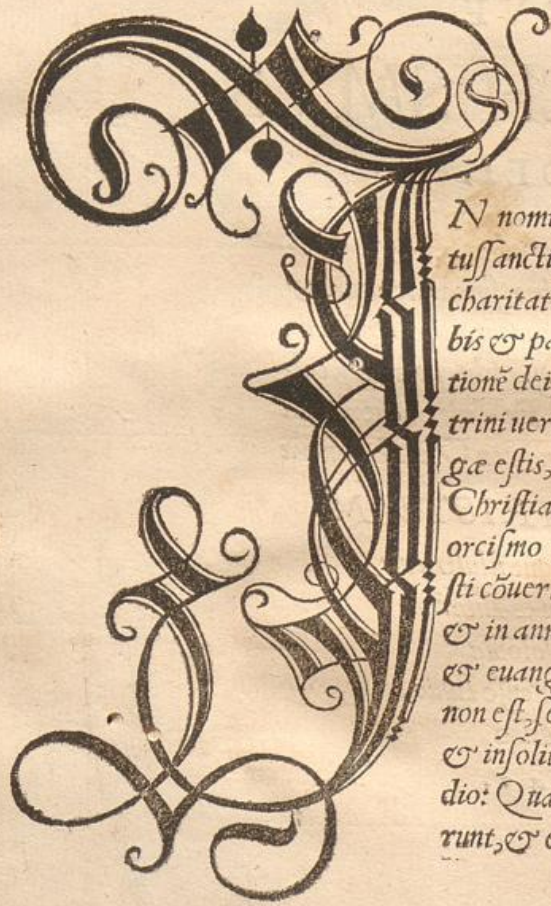 IN nomi
tuſſancti
charitat
bis & pa
tionē dei
trini uer
gæ eſtis,
Chriſtia
orciſmo
ſti cōuer
& in ann
& euang
non eſt, ſe
& inſoli
dio: Qua
runt, & c